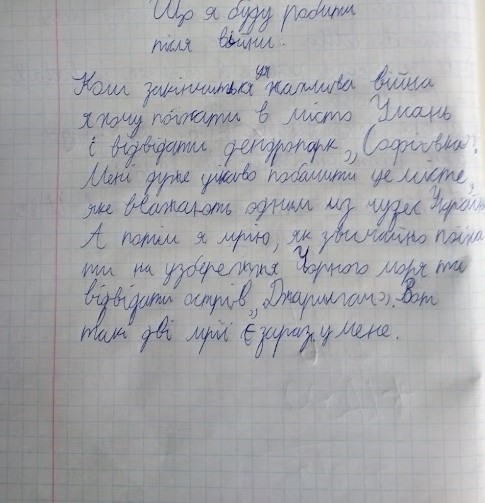 Що я буду робити
після війни.
Коли закінчиться ця жахлива війна
я хочу поїхати в місто Умань
і відвідати дендропарк „Софіївка".
Мені дуже цікаво побачити це місце,
яке вважають одним из чудес України.
А потім я мрію, як звичайно поїха
ти на узбережжя Чорного моря та
відвідати острів „Джарилгач". Вот
такі дві мрії є зараз у мене.